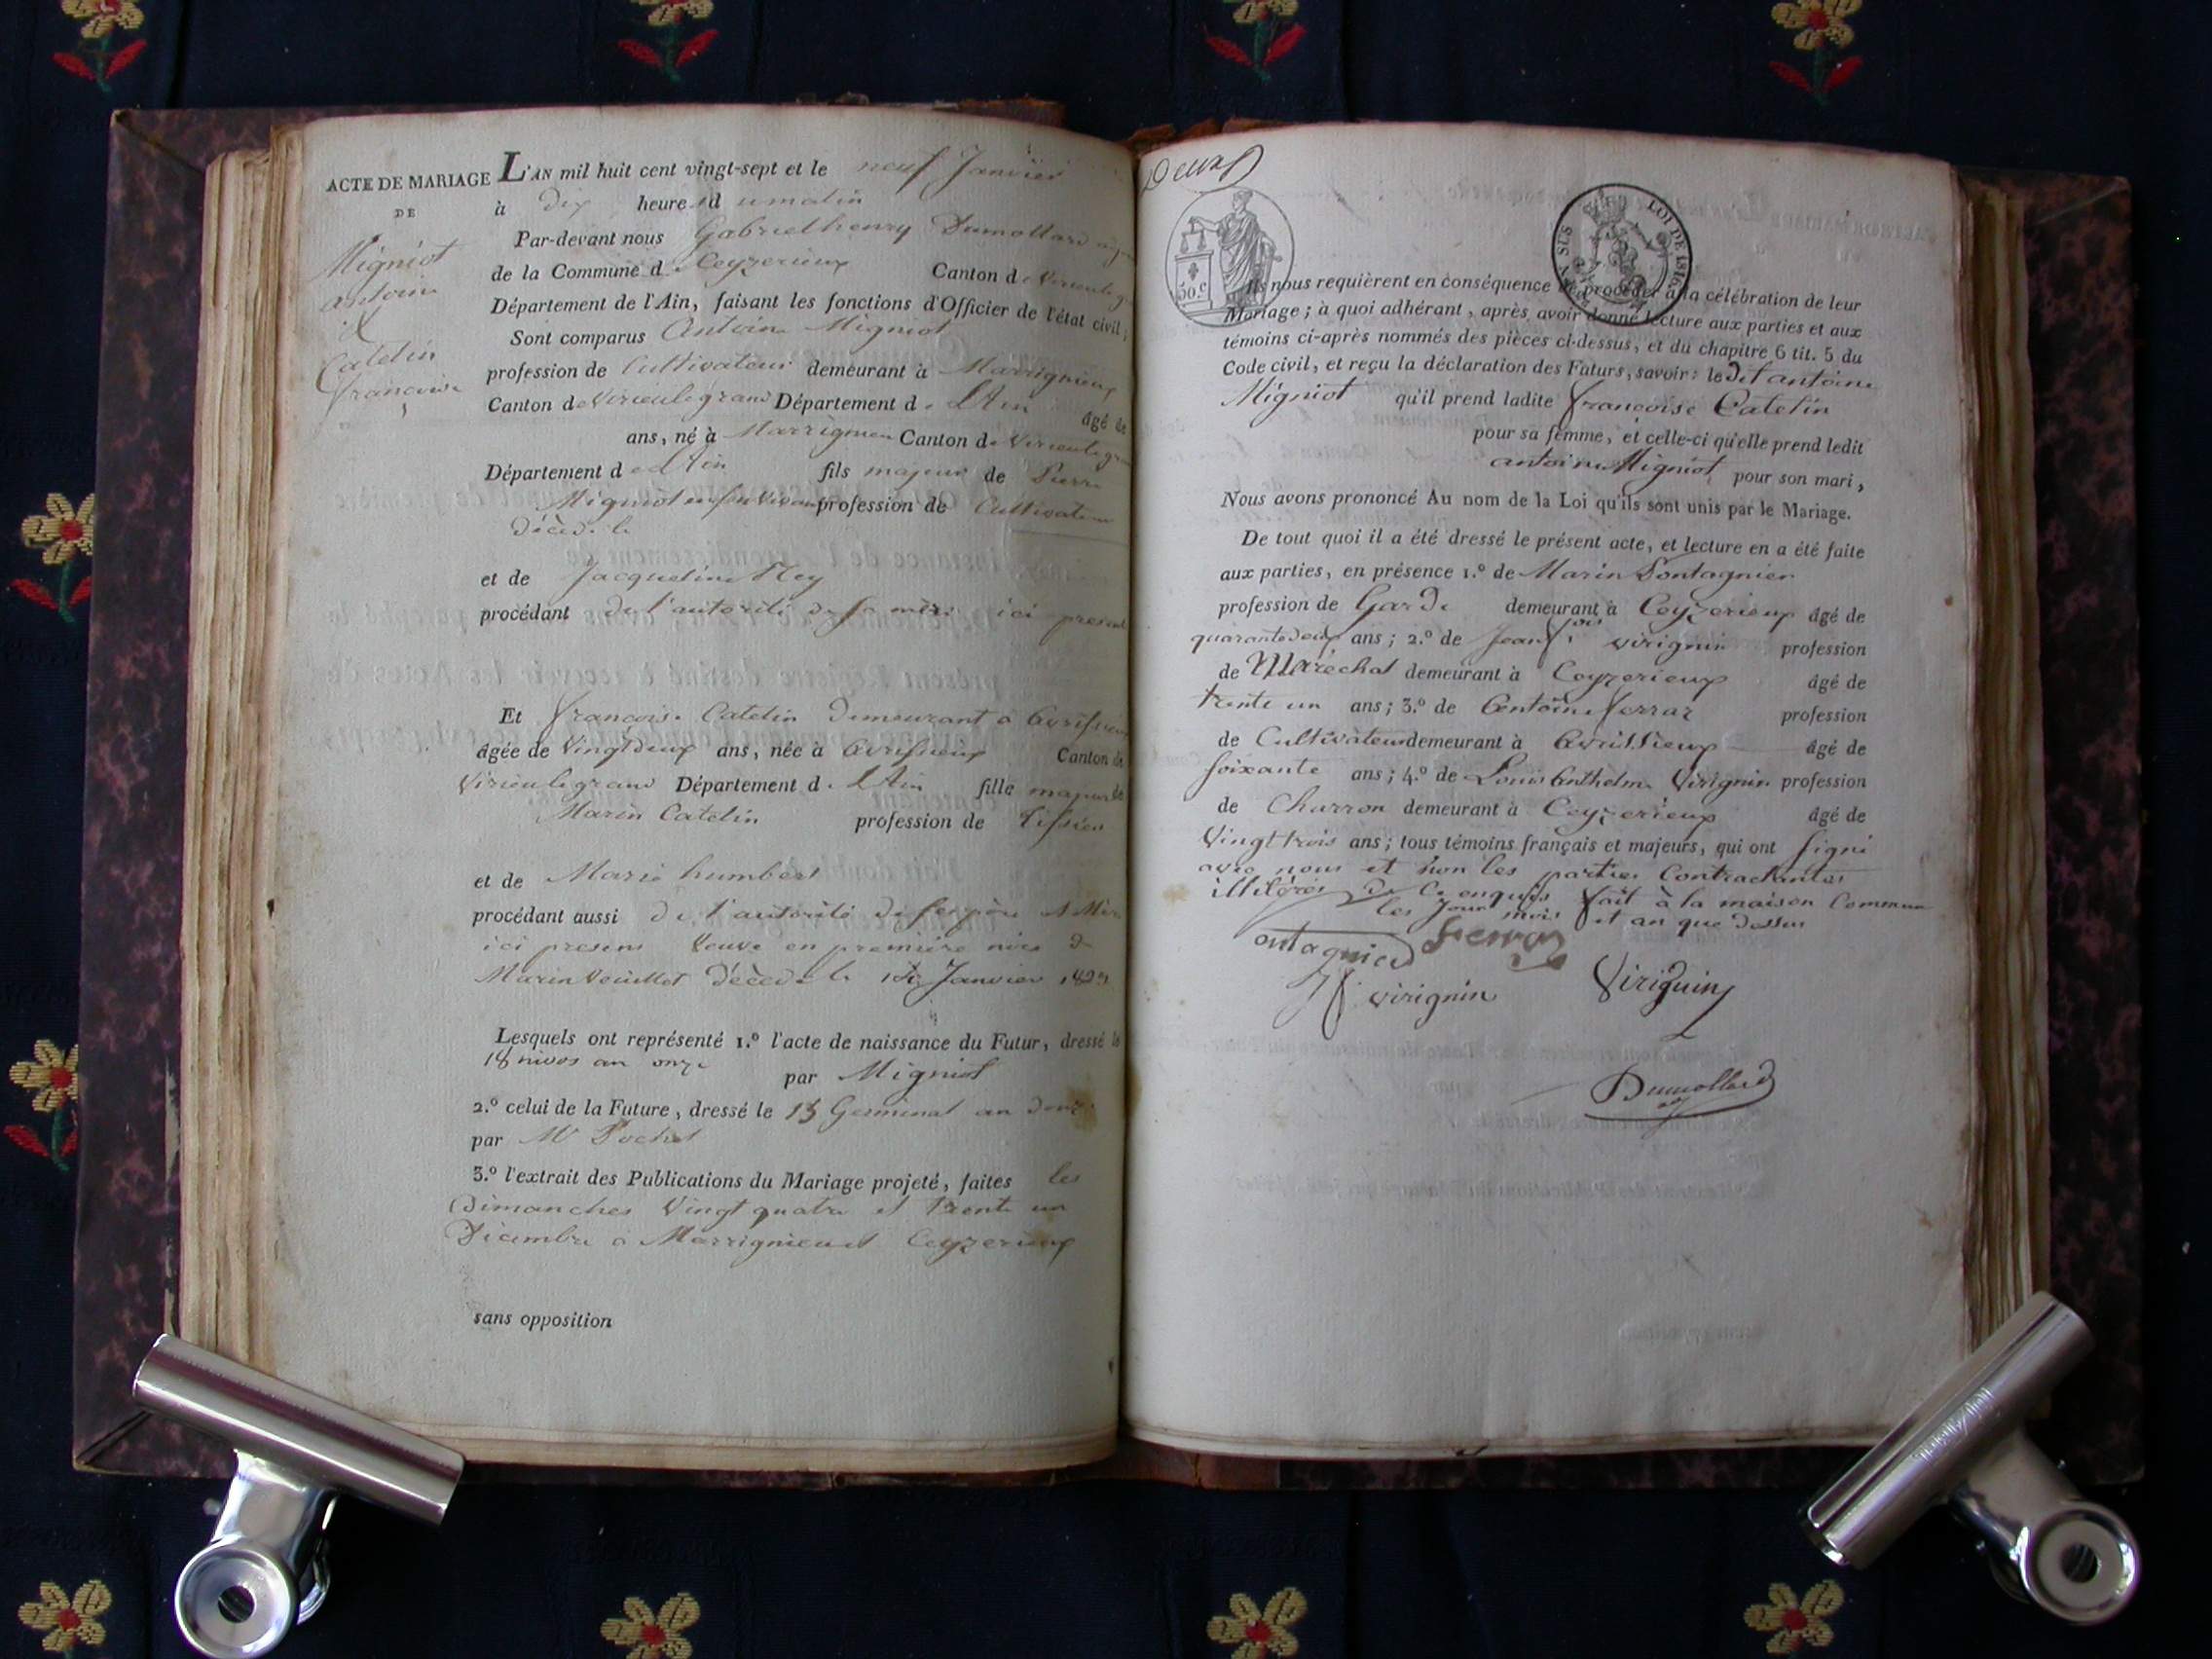 ACTE DE MARIAGE
DE
Migniot
antoine
&
Catelin
francoise
L'AN mil huit cent vingt-sept et le neuf Janvier
à dix heure du matin
Par-devant nous Gabriel henry Dumollard
de la Commune de Ceyzerieux Canton de Virieulegrand
Département de l'Ain, faisant les fonctions d'Officier de l'état civil;
Sont comparus Antoine Migniot
profession de Cultivateur demeurant à Marrignieux
Canton de Virieulegrand Département de L'Ain âgé de
ans, né à Marrignieu Canton de Virieulegrand
Département de L'Ain fils majeur de Pierre
Migniot en son vivant profession de Cultivateur
décédé le
et de Jacqueline Rey
procédant de l'autorité de sa mère ici present
Et francoise Catelin demeurant a Avrissieux
âgée de Vingt deux ans, née à Avrissieux Canton de
Virieulegrand Département de L'Ain fille majeur de
Marin Catelin profession de Tissier
et de Marie humbert
procédant aussi de l'autorité de ses père & Mère
ici presens Veuve en première noce de
Marin Veuillet décédé le Janvier
Lesquels ont représenté 1.º l'acte de naissance du Futur, dressé le
18 nivos an onze
par Migniot
2.º celui de la Future, dressé le 13 Germinal an douze
par Mr Pochet
3.º l'extrait des Publications du Mariage projeté, faites les
Dimanches Vingt quatre et trente un
Décembre a Marrignieu et Ceyzerieux
sans opposition
Deux
50.c
LOI DE 1816
EN SUS
Ils nous requièrent en conséquence de procéder à la célébration de leur
Mariage; à quoi adhérant, après avoir donné lecture aux parties et aux
témoins ci-après nommés des pièces ci-dessus, et du chapitre 6 tit. 5 du
Code civil, et reçu la déclaration des Futurs, savoir: ledit antoine
Migniot qu'il prend ladite francoise Catelin
pour sa femme, et celle-ci qu'elle prend ledit
antoine Migniot pour son mari,
Nous avons prononcé Au nom de la Loi qu'ils sont unis par le Mariage.
De tout quoi il a été dressé le présent acte, et lecture en a été faite
aux parties, en présence 1.º de Marin Pontagnier
profession de Garde demeurant à Ceyzerieux âgé de
quarante deux ans; 2.º de Jean fois virignin profession
de Maréchal demeurant à Ceyzerieux âgé de
trente un ans; 3.º de Antoine ferraz profession
de Cultivateur demeurant à Avrissieux âgé de
soixante ans; 4.º de Louis Anthelme Virignin profession
de Charron demeurant à Ceyzerieux âgé de
Vingt trois ans; tous témoins français et majeurs, qui ont signé
avec nous et non les parties Contractantes
illitérés de ce enquis fait à la maison Commune
les jour mois et an que dessus
Ferraz
virignin
Viriguin
Dumollard